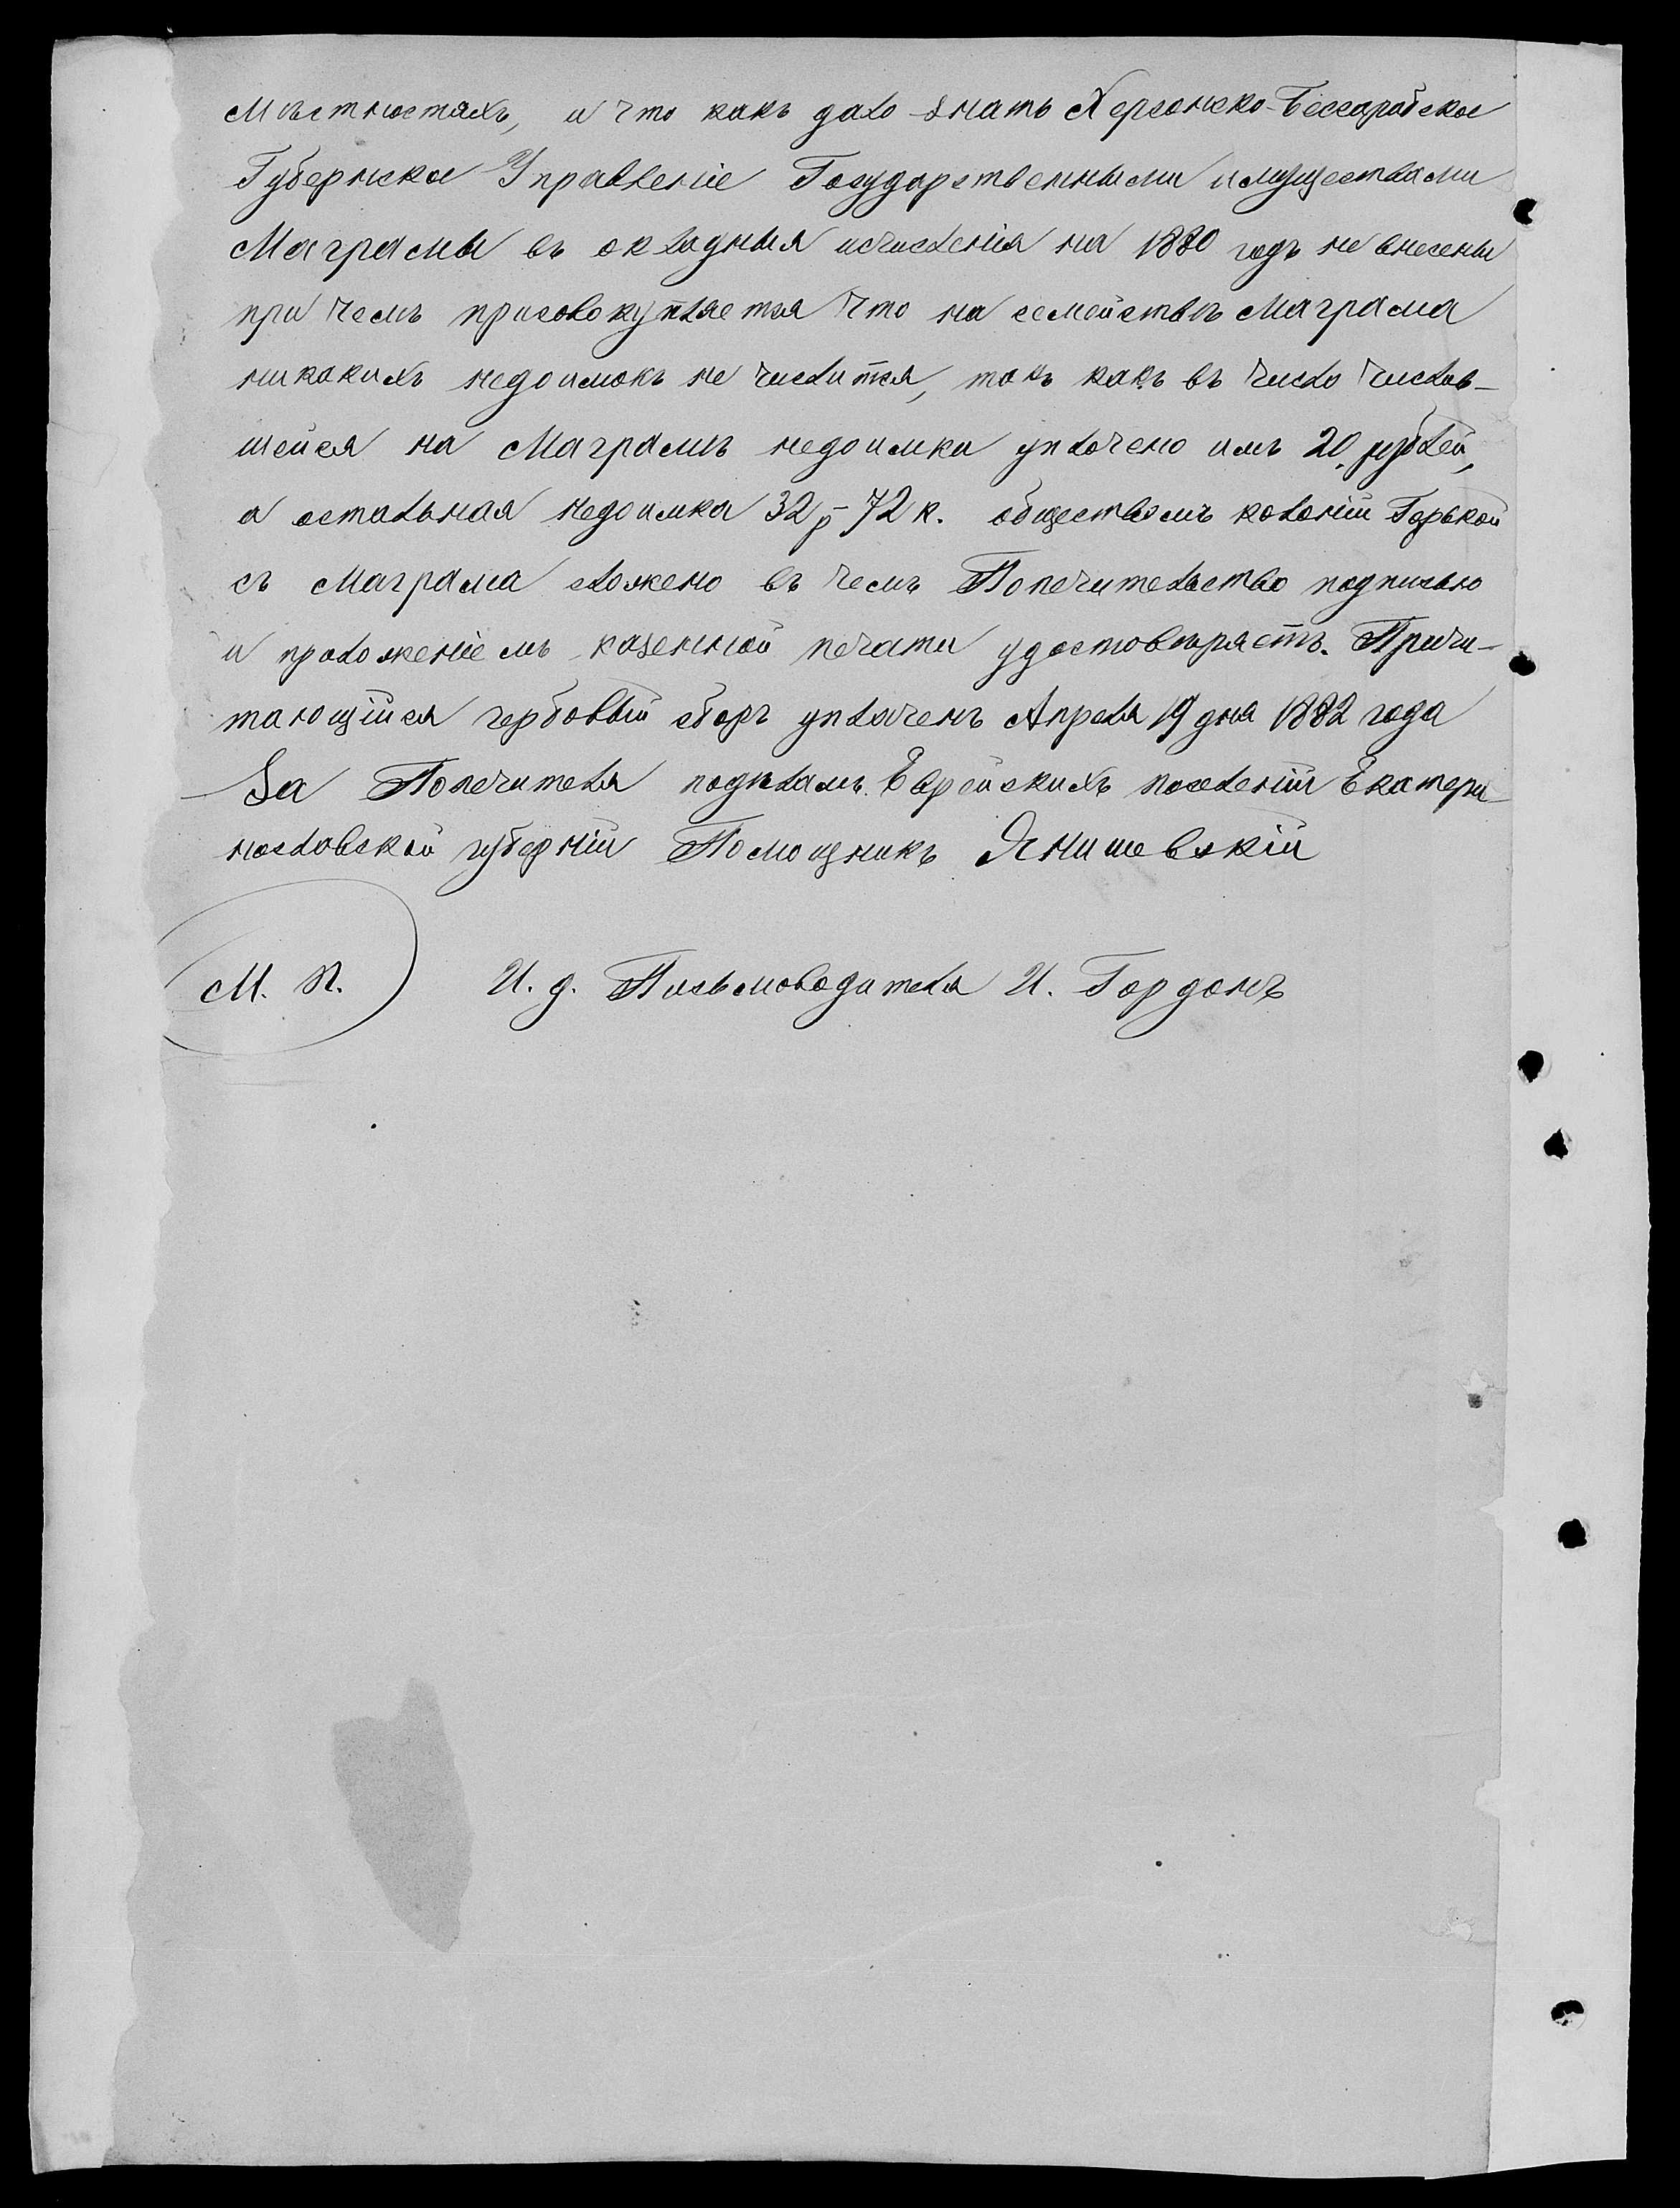 мѣстностяхъ, и что какъ дало знать Херсонско-Бессарабское
Губернское Управленіе Государственными имуществами
Маграмы въ окладныя исчисленія на 1880 годъ не внесены
при чемъ присовокупляется что на семействѣ Маграма
никакихъ недоимокъ не числится, такъ какъ въ число числив-
шейся на Маграмѣ недоимки уплочено имъ 20 рублей,
а остальная недоимка 32 р 72 к. обществомъ колоніи Горькой
съ Маграма сложено въ чемъ Попечительство подписью
и приложеніемъ казенной печати удостовѣряетъ. Причи-
тающійся гербовый сборъ уплоченъ Апреля 19 дня 1882 года
За Попечителя подписалъ Еврейскихъ поселеній Екатери-
нославской губерніи Помощникъ Янишевскій
М. П. И. д. Письмоводителя И. Гордонъ